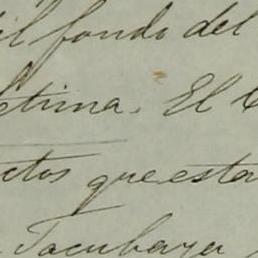 il fondo del
etina. El
ctos que esta
Tacubaya